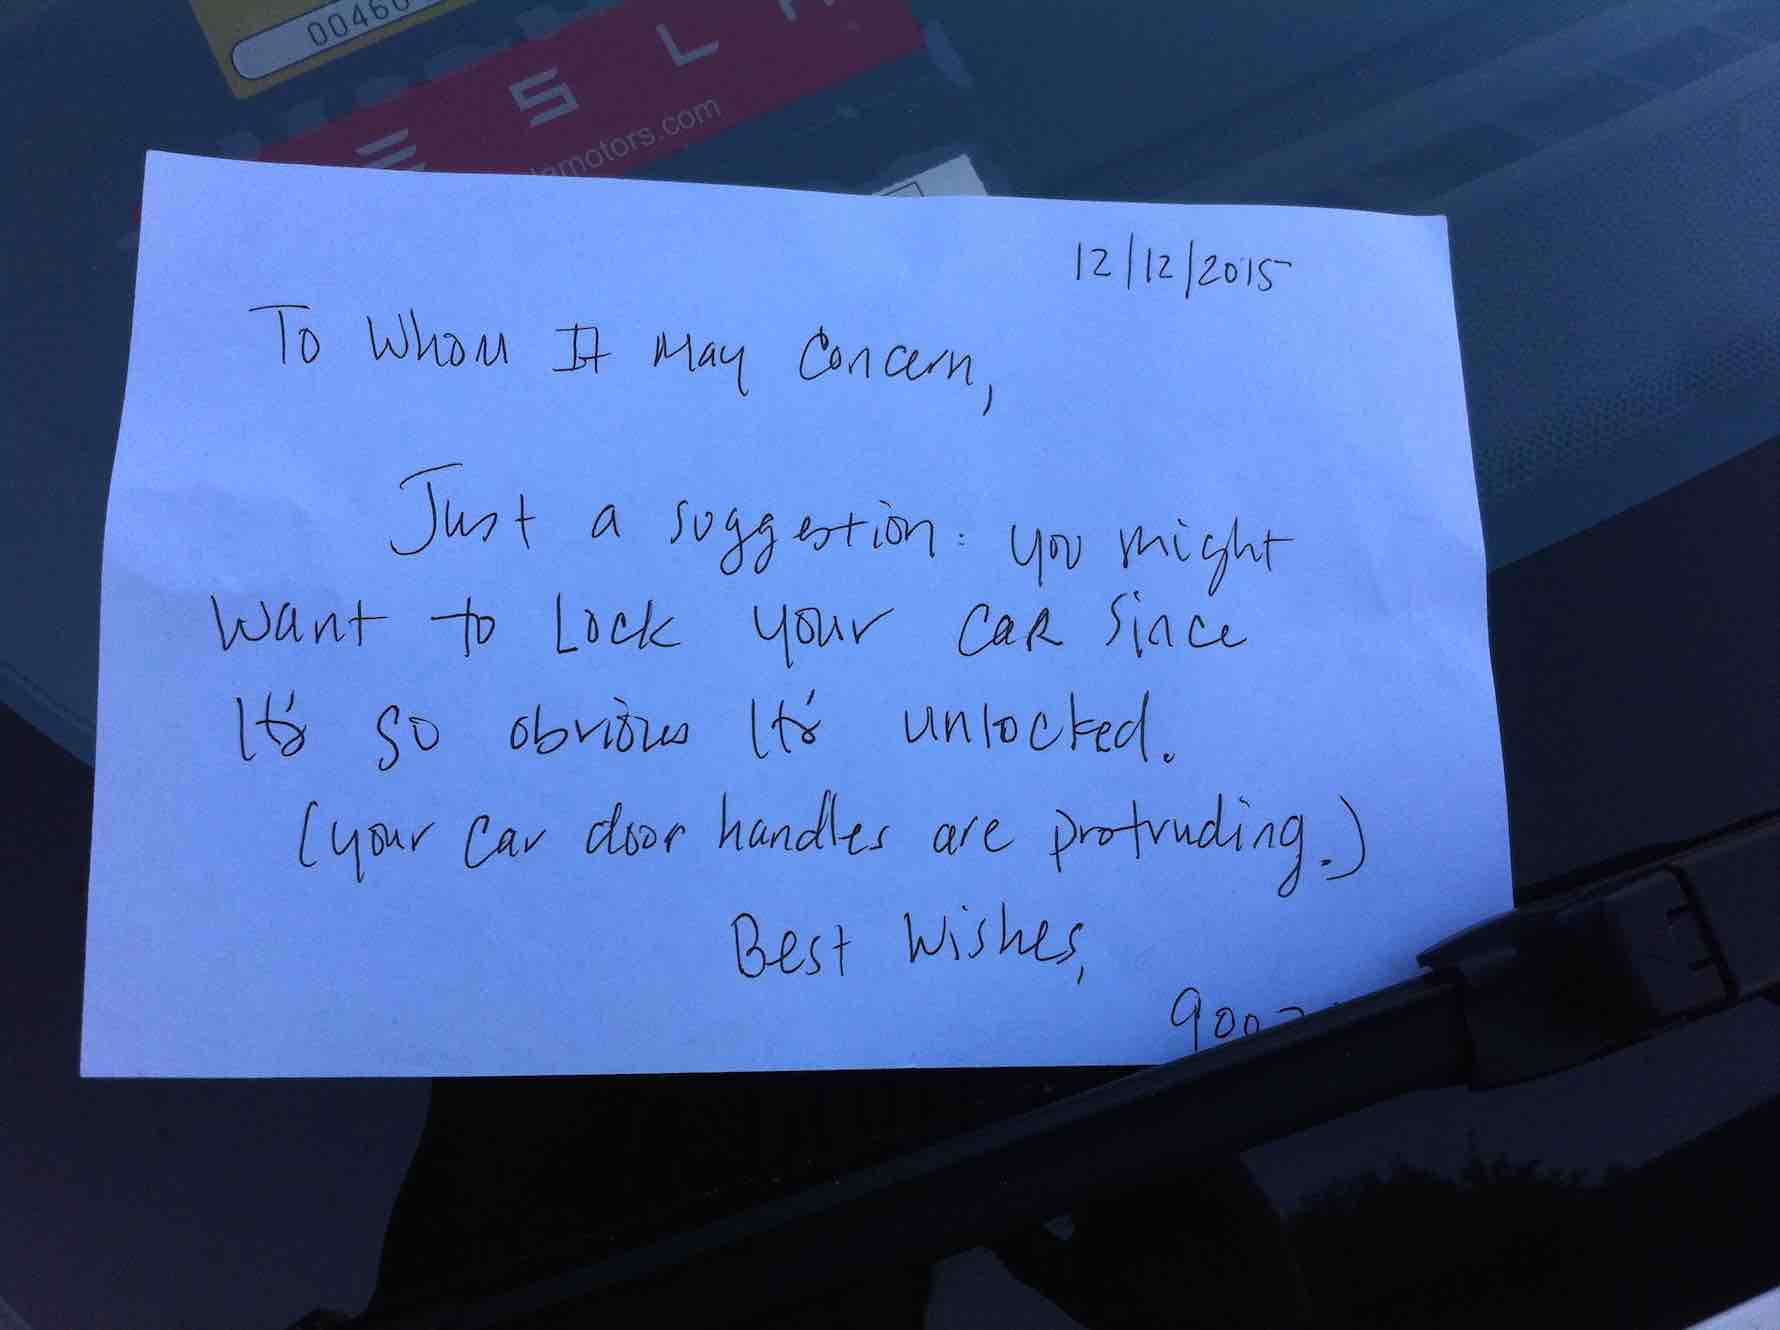 00460
E S L A
motors.com
12/12/2015
To Whom It May Concern,
Just a suggestion: you might
want to Lock your car since
It's so obvious It's unlocked.
(your car door handles are protruding.)
Best Wishes,